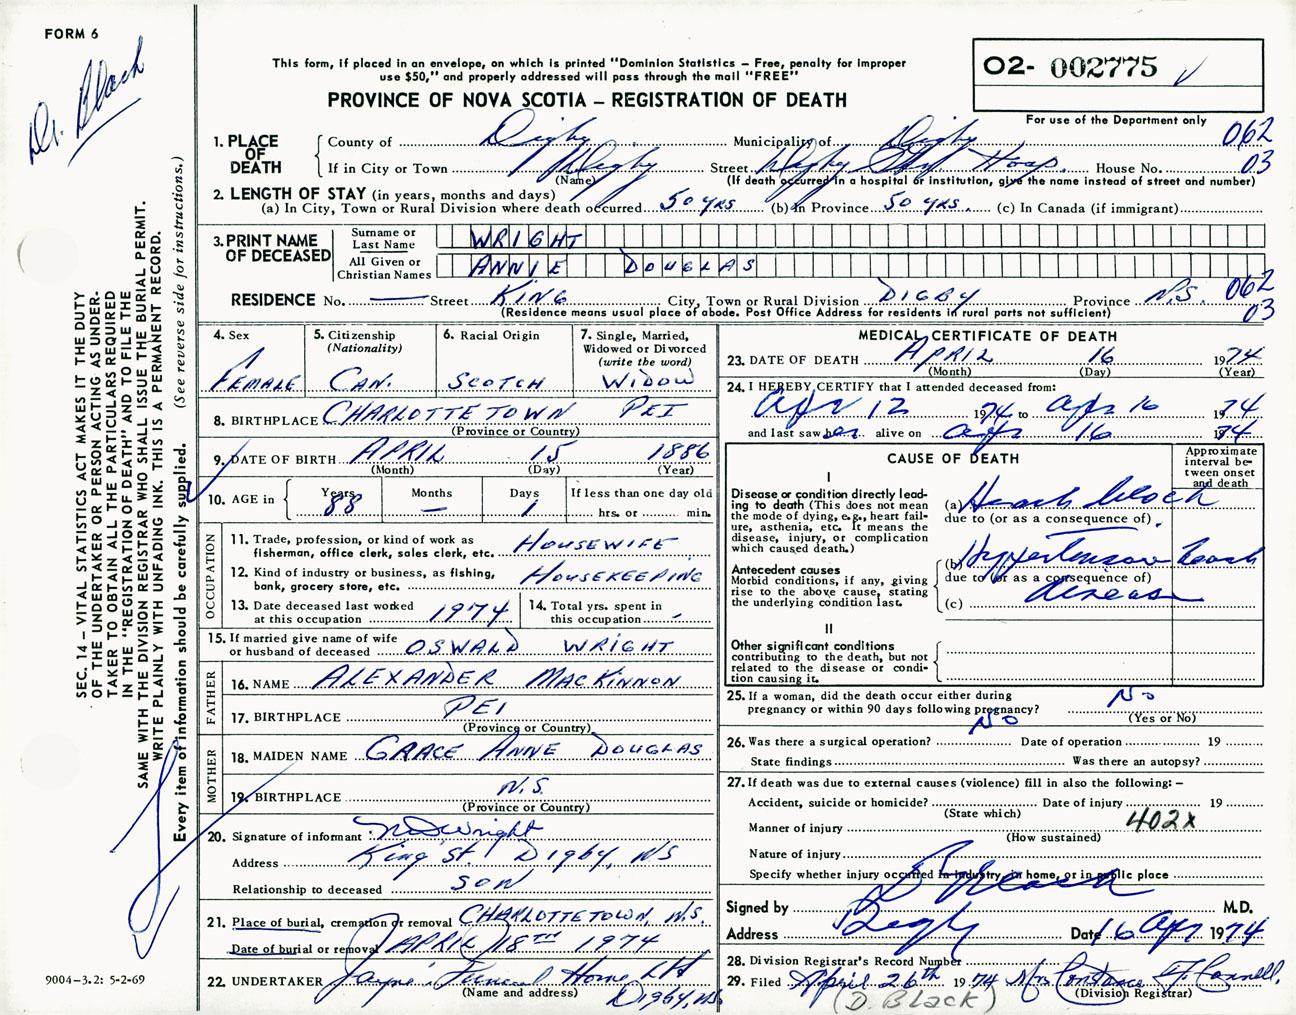 FORM 6
Dr. Black
This form, if placed in an envelope, on which is printed "Dominion Statistics – Free, penalty for improper
use $50," and properly addressed will pass through the mail "FREE"
PROVINCE OF NOVA SCOTIA – REGISTRATION OF DEATH
O2- 002775
For use of the Department only
062
03
SEC. 14 – VITAL STATISTICS ACT MAKES IT THE DUTY
OF THE UNDERTAKER OR PERSON ACTING AS UNDER-
TAKER TO OBTAIN ALL THE PARTICULARS REQUIRED
IN THE "REGISTRATION OF DEATH" AND TO FILE THE
SAME WITH THE DIVISION REGISTRAR WHO SHALL ISSUE THE BURIAL PERMIT.
WRITE PLAINLY WITH UNFADING INK. THIS IS A PERMANENT RECORD.
Every item of information should be carefully supplied. (See reverse side for instructions.)
1. PLACE OF DEATH
County of Digby Municipality of Digby
If in City or Town Digby Street Digby Gen. Hosp. House No.
(Name) (If death occurred in a hospital or institution, give the name instead of street and number)
2. LENGTH OF STAY (in years, months and days)
(a) In City, Town or Rural Division where death occurred 50 yrs (b) In Province 50 yrs. (c) In Canada (if immigrant)
3. PRINT NAME OF DECEASED
Surname or Last Name WRIGHT
All Given or Christian Names ANNIE DOUGLAS
RESIDENCE No. — Street KING City, Town or Rural Division DIGBY Province N.S. 062
(Residence means usual place of abode. Post Office Address for residents in rural parts not sufficient) 03
4. Sex FEMALE
5. Citizenship (Nationality) CAN.
6. Racial Origin SCOTCH
7. Single, Married, Widowed or Divorced (write the word) WIDOW
8. BIRTHPLACE CHARLOTTETOWN PEI
(Province or Country)
9. DATE OF BIRTH APRIL 15 1886
(Month) (Day) (Year)
10. AGE in Years 88 Months — Days 1 If less than one day old
hrs. or min.
OCCUPATION
11. Trade, profession, or kind of work as fisherman, office clerk, sales clerk, etc. HOUSEWIFE
12. Kind of industry or business, as fishing, bank, grocery store, etc. HOUSEKEEPING
13. Date deceased last worked at this occupation 1974
14. Total yrs. spent in this occupation -
15. If married give name of wife or husband of deceased OSWALD WRIGHT
FATHER
16. NAME ALEXANDER MACKINNON
17. BIRTHPLACE PEI
(Province or Country)
MOTHER
18. MAIDEN NAME GRACE ANNE DOUGLAS
19. BIRTHPLACE N.S.
(Province or Country)
20. Signature of informant Wright
Address King St. Digby, NS
Relationship to deceased SON
21. Place of burial, cremation or removal CHARLOTTETOWN, N.S.
Date of burial or removal APRIL 18TH 1974
22. UNDERTAKER Jayne's Funeral Home Ltd
(Name and address) Digby, NS
9004-3.2: 5-2-69
MEDICAL CERTIFICATE OF DEATH
23. DATE OF DEATH APRIL 16 1974
(Month) (Day) (Year)
24. I HEREBY CERTIFY that I attended deceased from:
Apr 12 1974 to Apr 16 1974
and last saw her alive on Apr 16 1974
CAUSE OF DEATH
Approximate interval between onset and death
I
Disease or condition directly leading to death (This does not mean the mode of dying, e.g., heart failure, asthenia, etc. It means the disease, injury, or complication which caused death.)
(a) Heart block
due to (or as a consequence of)
Antecedent causes
Morbid conditions, if any, giving rise to the above cause, stating the underlying condition last.
(b) Hypertension heart
due to (or as a consequence of)
(c) disease
II
Other significant conditions
contributing to the death, but not related to the disease or condition causing it.
25. If a woman, did the death occur either during No
pregnancy or within 90 days following pregnancy? (Yes or No)
No
26. Was there a surgical operation? Date of operation 19
State findings Was there an autopsy?
27. If death was due to external causes (violence) fill in also the following: –
Accident, suicide or homicide? Date of injury 19
(State which)
Manner of injury 402x
(How sustained)
Nature of injury
Specify whether injury occurred in industry, in home, or in public place
Signed by Black M.D.
Address Digby Date 16 Apr 1974
28. Division Registrar's Record Number
29. Filed April 26th 1974 Mrs Constance F. Connell.
(Division Registrar)
(D. BLACK)